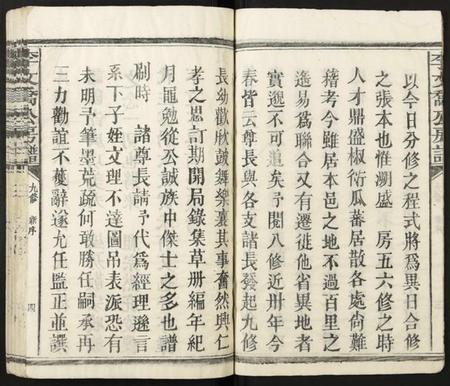 以今日分修之程式將為異日合修
之張本也惟測盛 房五六修之時
人才鼎盛椒衍瓜蕃居散各處尙難
稽考今雖居本邑之地不過百里之
遙易為聯合又有遷徙他省異地者
實邈不可追矣予閱八修近卅年今
春皆云尊長與各支諸長發起九修
長幼歡欣鼓舞樂襄其事奮然興仁
孝之思訂期開局錄集草册編年紀
月黽勉從公誠族中傑士之多也譜
刷時 諸尊長請予代為經理遜言
系下子姓文理不達圖吊表派恐有
未明予筆墨荒疏何敢勝任嗣承再
三力勸誼不獲辭遂允任監正並譔
九修 序
四